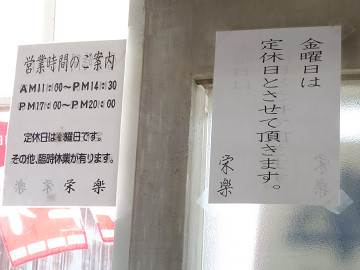 営業時間のご案内
AM11:00～PM14:30
PM17:00～PM20:00
定休日は金曜日です。
その他、臨時休業が有ります。
栄楽
金曜日は
定休日とさせて頂きます。
栄楽